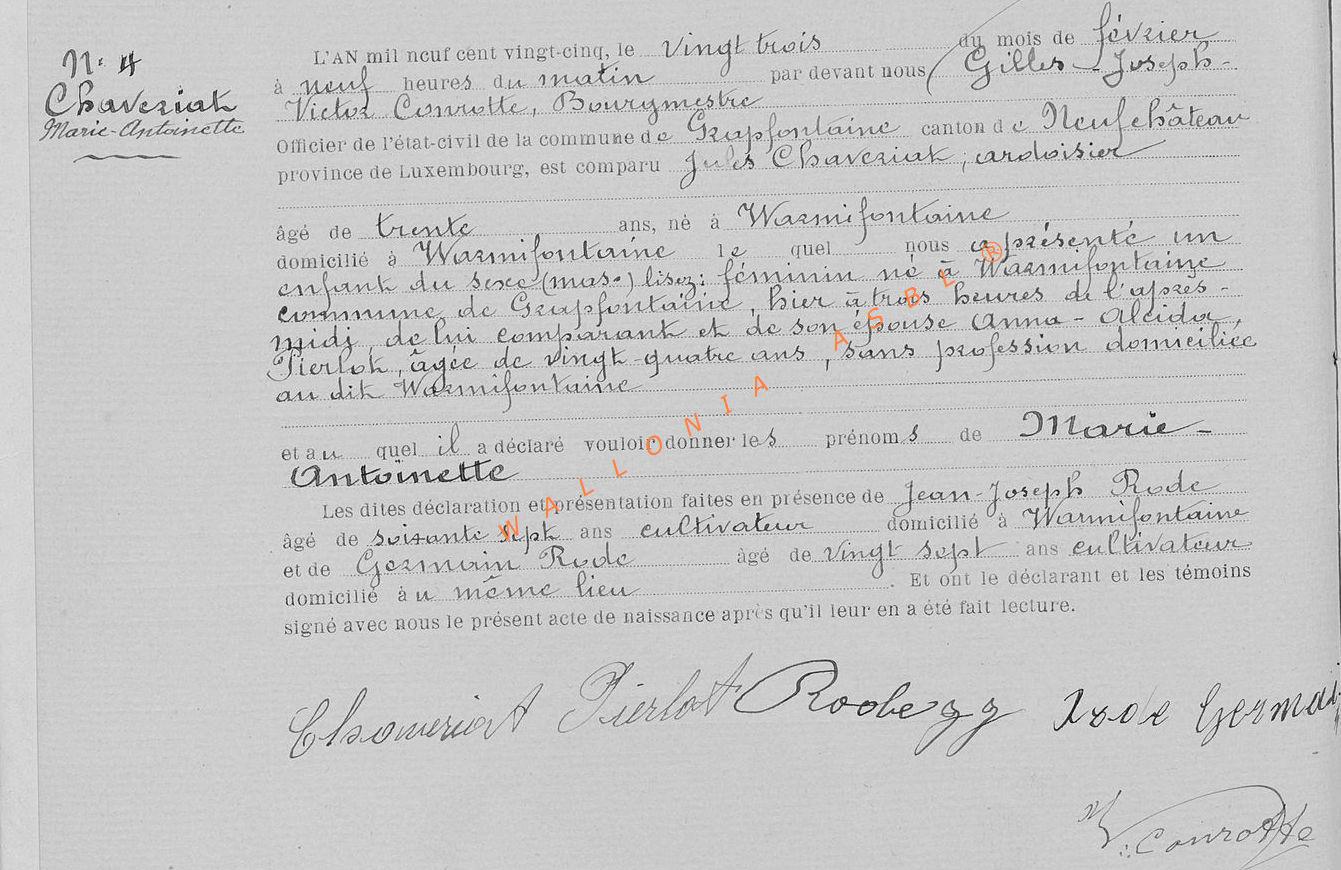 N. 4
Chaveriat
Marie-Antoinette
L'AN mil neuf cent vingt-cinq, le vingt trois du mois de février
à neuf heures du matin par devant nous Gilles-Joseph-
Victor Conrotte, Bourgmestre
Officier de l'état-civil de la commune de Grapfontaine canton de Neufchâteau
province de Luxembourg, est comparu Jules Chaveriat, ardoisier
âgé de trente ans, né à Warmifontaine
domicilié à Warmifontaine le quel nous a présenté un
enfant du sexe (mas.) lisez: féminin né à Warmifontaine
commune de Grapfontaine, hier à trois heures de l'après-
midi, de lui comparant et de son épouse Anna-Alcida,
Pierlot, âgée de vingt-quatre ans, sans profession domiciliée
au dit Warmifontaine
et au quel il a déclaré vouloir donner les prénoms de Marie-
Antoinette
Les dites déclaration et présentation faites en présence de Jean-Joseph Rode
âgé de soixante sept ans cultivateur domicilié à Warmifontaine
et de Germain Rode âgé de vingt sept ans cultivateur
domicilié au même lieu. Et ont le déclarant et les témoins
signé avec nous le présent acte de naissance après qu'il leur en a été fait lecture.
WALLONIA ASBL ®
Chaveriat Pierlot Rode JJ Rode Germai
V. Conrotte